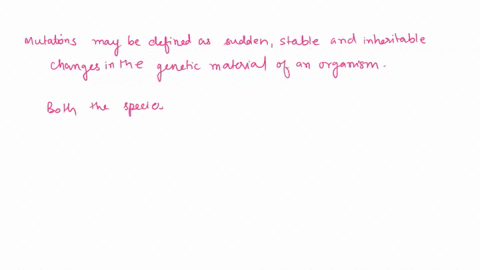 Mutations may be defined as sudden, stable and inheritable
changes in the genetic material of an organism.
Both the species